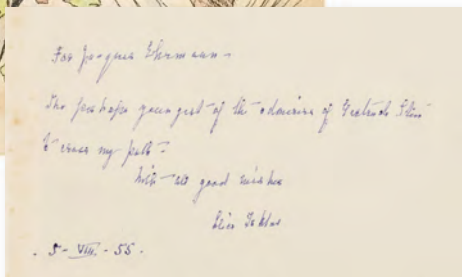 For Jacques Ehrmann -
The perhaps youngest of the admirers of Gertrude Stein
to cross my path -
With all good wishes
Alice Toklas
. 5 - VIII. - 55 -